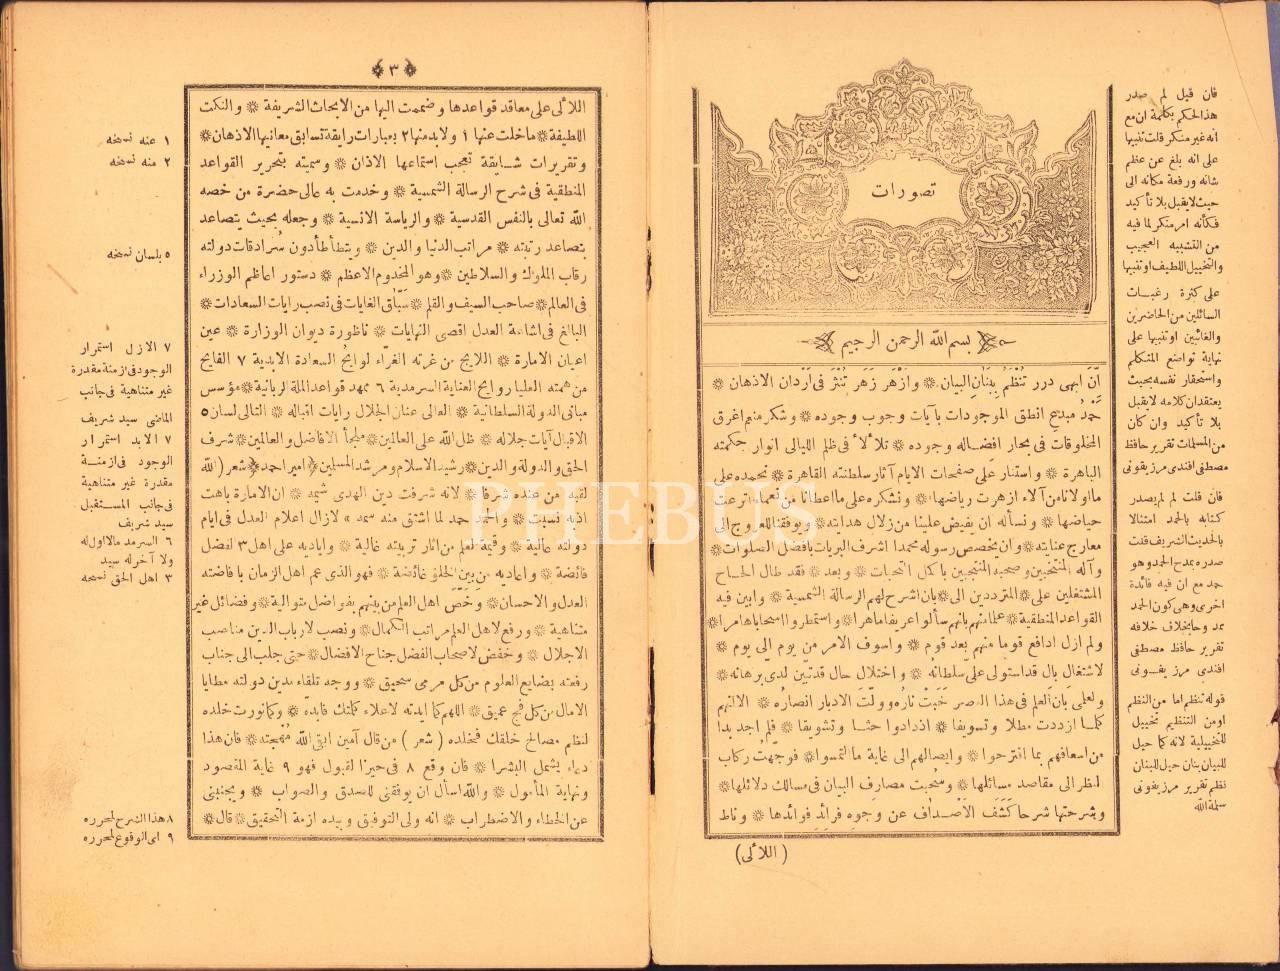 تصورات
بسم الله الرحمن الرحيم
انّ ابهى درر تُنْظَمُ بِبَنَانِ البيان ۞ وَازْهَرَ زَهَر تُنْثَرُ فى اَرْدان الاذهان ۞
حَمْدُ مبدع انطق الموجودات بآيات وجوب وجوده ۞ وشكر منعم اغرق
المخلوقات فى بحار افضاله وجوده ۞ تلألأ فى ظلم الليالى انوار حكمته
الباهرة ۞ واستنار على صفحات الايام آثار سلطنته القاهرة ۞ نحمده على
ما اولانا من آلاء ازهرت رياضها ۞ ونشكره على ما اعطانا من نعماء اترعت
حياضها ۞ ونسأله ان يفيض علينا من زلال هدايته ۞ ويوفقنا للعروج الى
معارج عنايته ۞ وان يخصص رسوله محمدا اشرف البريات بافضل الصلوات ۞
وآله المنتخبين وصحبه المنتجبين باكمل التحيات ۞ وبعد ۞ فقد طال الحاح
المشتغلين على ۞ والمترددين الى ۞ بان اشرح لهم الرسالة الشمسية ۞ وابين فيه
القواعد المنطقية ۞ علما منهم بانهم سألوا عريفا ماهرا ۞ واستمطروا سحابا هامرا ۞
ولم ازل ادافع قوما منهم بعد قوم ۞ واسوف الامر من يوم الى يوم ۞
لاشتغال بال قد استولى على سلطانه ۞ واختلال حال قد تبين لدى برهانه ۞
ولعلمى بان العلم فى هذا العصر خَبَتْ نَارُه وولّت الادبار انصارُه ۞ الا انهم
كلما ازددت مطلا وتسويفا ۞ ازدادوا حثا وتشويقا ۞ فلم اجد بدا
من اسعافهم بما اقترحوا ۞ وايصالهم الى غاية ما التمسوا ۞ فوجّهت ركاب
النظر الى مقاصد مسائلها ۞ وسحبت مصارف البيان فى مسالك دلائلها ۞
وشرحتها شرحا كَشَفَ الاَصْداف عن وجوه فرائد فوائدها ۞ وناط
(اللآلى)
فان قيل لم صدر
هذا الحكم بكلمة ان مع
انه غير منكر قلت تنبيها
على انه بلغ عن عظم
شانه ورفعة مكانه الى
حيث لا يقبل بلا تأكيد
فكأنه امر منكر لما فيه
من التشبيه العجيب
والتخييل اللطيف او تنبيها
على كثرة رغبات
السائلين من الحاضرين
والغائبين او تنبيها على
نهاية تواضع المتكلم
واستحقار نفسه بحيث
يعتقد ان كلامه لا يقبل
بلا تأكيد وان كان
من المسلمات تقرير حافظ
مصطفى افندى مرزيفونى
فان قلت لم لم يصدر
كتابه بالحمد امتثالا
بالحديث الشريف قلت
صدره بمدح الحمد وهو
حمد مع ان فيه فائدة
اخرى وهى كون الحمد
بمدوحا بخلاف خلافه
تقرير حافظ مصطفى
افندى مرزيفونى
قوله تنظم اما من النظم
او من التنظيم تخييل
للتخييلية لانه كما حيل
للبيان بنان حيل للبنان
نظم تقرير مرزيفونى
سلمه الله
۞ ٣ ۞
اللآلى على معاقد قواعدها وضممت اليها من الابحاث الشريفة ۞ والنكت
اللطيفة ۞ ما خلت عنها ١ ولا بد منها ٢ بعبارات رايقة تسابق معانيها الاذهان ۞
وتقريرات شايقة تعجب استماعها الاذان ۞ وسميته بتحرير القواعد
المنطقية فى شرح الرسالة الشمسية ۞ وخدمت به عالى حضرة من خصه
الله تعالى بالنفس القدسية ۞ والرياسة الانسية ۞ وجعله بحيث يتصاعد
بتصاعد رتبته ۞ مراتب الدنيا والدين ۞ ويتطأطأ دون سُرادقات دولته
رقاب الملوك والسلاطين ۞ وهو المخدوم الاعظم ۞ دستور اعاظم الوزراء
فى العالم ۞ صاحب السيف والقلم ۞ سبّاق الغايات فى نصب رايات السعادات ۞
البالغ فى اشاعة العدل اقصى النهايات ۞ ناظورة ديوان الوزارة ۞ عين
اعيان الامارة ۞ اللايح من غرته الغرّاء لوايح السعادة الابدية ٧ الفايح
من همته العليا روايح العناية السرمدية ٦ ممهد قواعد الملة الربانية ۞ مؤسس
مبانى الدولة السلطانية ۞ العالى عنان الجلال رايات اقباله ۞ التالى لسان ٥
الاقبال آيات جلاله ۞ ظل الله على العالمين ۞ ملجأ الافاضل والعالمين ۞ شرف
الحق والدولة والدين ۞ رشيد الاسلام ومرشد المسلمين ۞ امير احمد ۞ شعر (الله
لقبه من عنده شرفا ۞ لانه شرفت دين الهدى شيمه ۞ ان الامارة باهت
اذ به نسبت ۞ واحمد حمد لما اشتق منه سمه ۞ لا زال اعلام العدل فى ايام
دولته عالية ۞ وقيمة العلم من اثار تربيته غالية ۞ واياديه على اهل ٣ الفضل
فائضة ۞ واعاديه من بين الخلق غائضة ۞ فهو الذى عم اهل الزمان بافاضته
العدل والاحسان ۞ وخصّ اهل العلم من بينهم بفواضل متوالية ۞ وفضائل غير
متناهية ۞ ورفع لاهل العلم مراتب الكمال ۞ ونصب لارباب الدين مناصب
الاجلال ۞ وخفض لاصحاب الفضل جناح الافضال ۞ حتى جلب الى جناب
رفعته بضايع العلوم من كل مرمى سحيق ۞ ووجه تلقاء مدين دولته مطايا
الامال من كل فج عميق ۞ اللهم كما ايدته لاعلاء كلمتك فابده ۞ وكما نورت خلده
لنظم مصالح خلقك فخلده (شعر) من قال آمين ابقى الله مُهْجته ۞ فان هذا
دعاء يشمل البشرا ۞ فان وقع ٨ فى حيز القبول فهو ٩ غاية المقصود
ونهاية المأمول ۞ والله اسأل ان يوفقنى للصدق والصواب ۞ ويجنبنى
عن الخطاء والاضطراب ۞ انه ولى التوفيق وبيده ازمة التحقيق ۞ قال ۞
١ عنه نسخه
٢ منه نسخه
٥ بلسان نسخه
٧ الازل استمرار
الوجود فى ازمنة مقدرة
غير متناهية فى جانب
الماضى سيد شريف
٧ الابد استمرار
الوجود فى ازمنة
مقدرة غير متناهية
فى جانب المستقبل
سيد شريف
٦ السرمد ما لا اول له
ولا آخر له سيد
٣ اهل الحق نسخه
٨ هذا الشرح لمحرره
٩ اى الوقوع لمحرره
PHEBUS